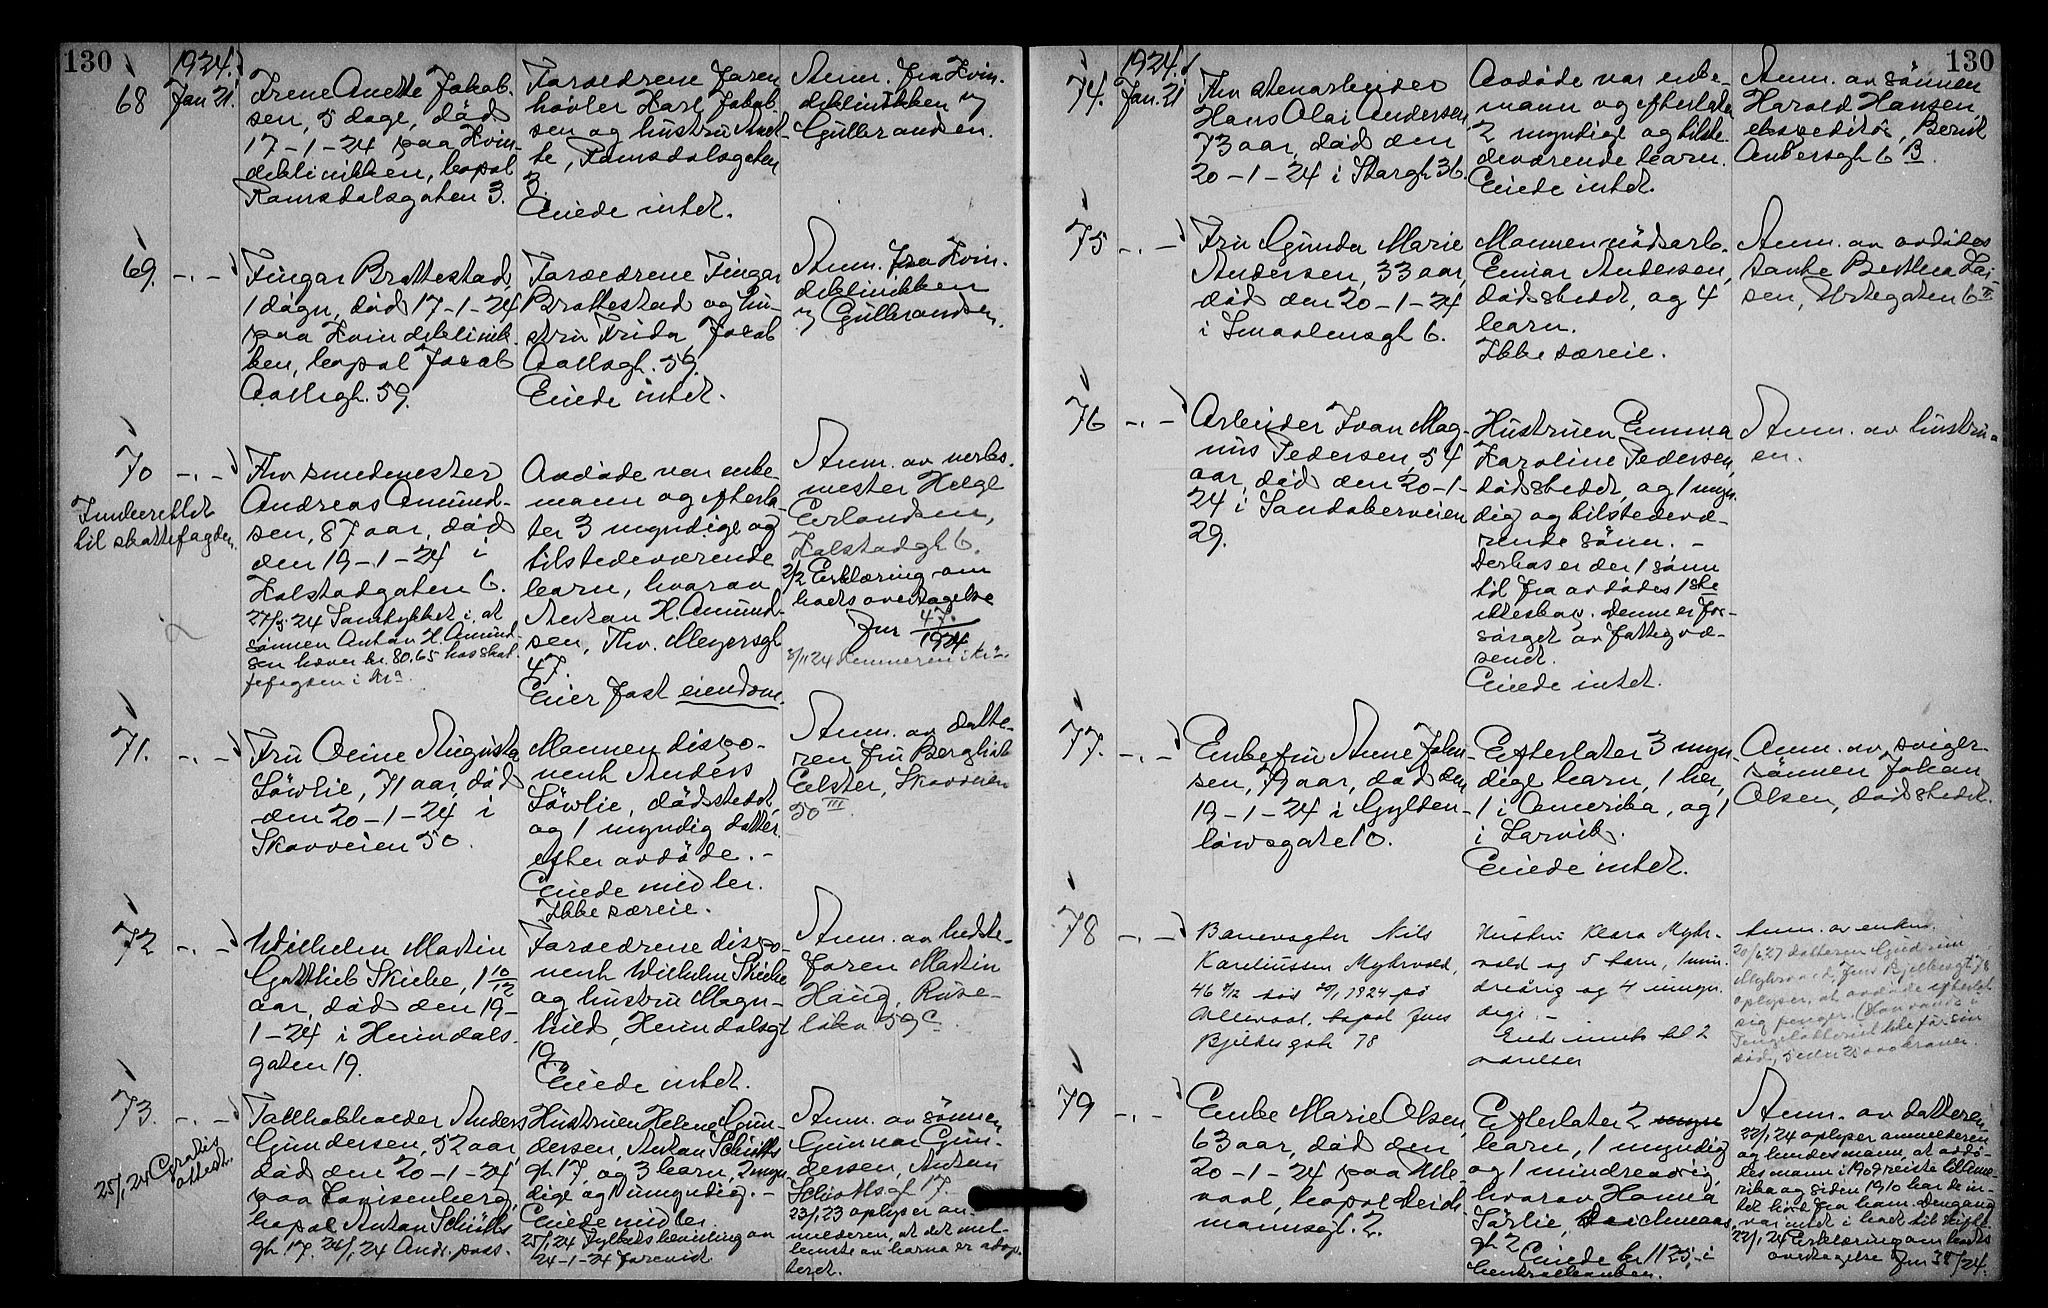 130
1924.
68
Jan 21.
Irene Anette Jakob-
sen, 5 dage, død
17-1-24 paa Kvin-
deklinikken, bopæl
Ramsdalsgaten 3.
Foræedrene
høvler Karl Jakob-
sen og hustru Anet-
te, Ramsdalsgaten
3.
Eiede intet.
Anm. fra Kvin-
deklinikken v/
Gulbrandsen.
69. -.-
Fingar Brattestad,
1 døgn, død 17-1-24
paa Kvindeklinik-
ken, bopæl Jacob
Aallsgt. 59.
Foræedrene Fingar
Brattestad og hu-
stru Frida, Jacob
Aallsgt. 59.
Eiede intet.
Anm. fra Kvin-
deklinikken
v/ Gulbrandsen.
70 -.-
til skattefogden.
Fhv. smedmester
Andreas Amund-
sen, 87 aar, død
den 19-1-24 i
Kalstadgaten 6.
24 Samtykket i, at
sønnen Anton H. Amund-
sen hæver kr. 80,65 hos skat-
tefogden i Kra.
Avdøde var enke-
mann og efterla-
ter 3 myndige og
tilstedeværende
barn, hvorav
Anton H. Amund-
sen, Thv. Meyersgt
47.
Eier fast eiendom.
Anm. av verks-
mester Helge
Erlandsen,
Kalstadgt 6.
2/2 Erklæring om
boets overtagelse
Jnr 47/1924
71. -.-
Fru Oline Augusta
Løvlie, 71 aar, død
den 20-1-24 i
Skovveien 50.
Mannen dispo-
nent Anders
Løvlie, dødsstedet,
og 1 myndig datter
efter avdøde. -
Eiede midler.
Ikke særeie.
Anm. av datte-
ren fru Berghild
Elster, Skovveien
50 III.
72 -.-
Wilhelm Martin
Gottlieb Skibe, 1 10/12
aar, død den 19-
1-24 i Heimdals-
gaten 19.
Foræedrene dispo-
nent Wilhelm Skibe
og hustru Magn-
hild, Heimdalsgt
19.
Eiede intet.
Anm. av bedste-
faren Martin
Haug, Ruse-
løkv 59 C.
73. -.-
25/1 24 Gratis
attest.
Gundersen, 52 aar,
død den 20-1-24
paa Lovisenberg,
bopæl Anton Schiøtts
gt 17.
Hustruen Helene Gun-
dersen, Anton Schiøtts
gt 17, og 3 barn, 2 myn-
dige og 1 umyndig. -
Eiede midler.
25/1 24 Fylkets bevilling av
24-1-24 forevist
Anm. av sønnen
Gunnar Gun-
dersen, Anton
Schiøttsgt 17.
23/1 23 oplyser an-
melderen, at det
130
1924.
74.
Jan. 21
Fhv stenarbeider
Hans Olai Andersen
73 aar, død den
20-1-24 i Storgt 36.
Avdøde var enke-
mann og efterlater
2 myndige og tilste-
deværende barn.
Eiede intet.
Anm. av sønnen
Harald Hansen,
ekspeditør, Bernt
Ankersgt 6 B.
75 -.-
Fru Gunda Marie
Andersen, 33 aar,
død den 20-1-24
i Smaalensgt 6.
Mannen nødsarb.
Einar Andersen,
dødsstedet, og 4
barn.
Ikke særeie.
Anm. av avdødes
tante Berthea Lar-
sen, Urtegaten 6 II
76 -.-
Arbeider Ivan Mag-
nus Pedersen, 54
aar, død den 20-1-
24 i Sandakerveien
29.
Hustruen Emma
Karoline Pedersen,
dødsstedet, og 1 myn-
dig og tilstedevæ-
rende sønn. -
Derhos er der 1 sønn
til fra avdødes 1ste
ekteskap. Denne er for-
sørget av fattigvæ-
senet.
Eiede intet.
Anm. av hustru-
en.
77. -.-
Enkefru Anne Johan-
sen, 79 aar, død den
19-1-24 i Gylden-
løvsgate 10.
Efterlater 3 myn-
dige barn, 1 her,
1 i Amerika, og 1
i Larvik.
Eiede intet.
Anm. av sviger-
sønnen Johan
Olsen, dødsstedet.
78 -.-
Banevogter Nils
Kareliussen Myhrvold,
1924 på
Ullevaal, bopæl Jens
Bjelkes gate 78
Hustru Klara Myhr-
vold og 5 barn, 1 min-
dreårig og 4 umyn-
dige. -
Anm. av enken.
20/6 27 datteren Gudrun
Myhrvold, Jens Bjelkesgt 78
oplyser, at avdøde efterlot
sig penger.
79 -.-
Enke Marie Olsen,
63 aar, død den
20-1-24 paa Ulle-
vaal, bopæl Deich-
mannsgt. 2.
Efterlater 2
barn, 1 myndig
og 1 mindreaarig,
hvorav Hanna
Sørlie, Deichmans-
gt 2
Eiede kr 1125,- i
Centralbanken.
Anm. av datteren
22/1 24 oplyser anmelderen
og hendes mann, at avdø-
des mann i 1907 reiste til Ame-
rika og siden 1910 har de in-
tet hørt fra ham. Dengang
var intet i boet til skifte
22/1 24 Erklæring om boets
overtagelse Jnr 38/24.